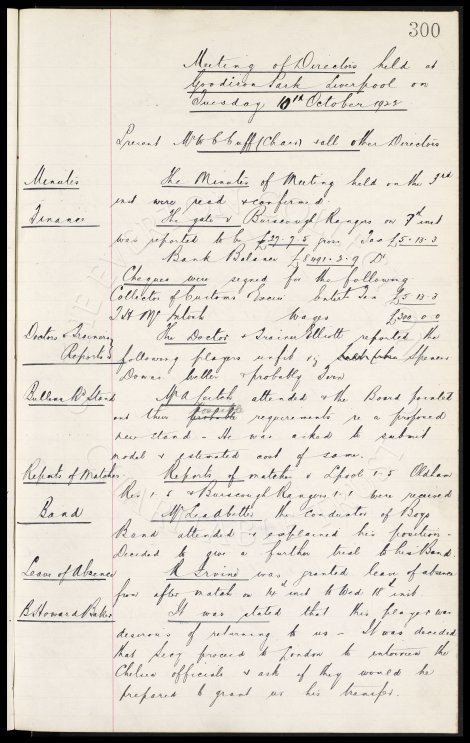 300
Meeting of Directors held at
Goodison Park Liverpool on
Tuesday 10th October 1922
Present Mr W C Cuff (Chair) & all other Directors
Minutes
The Minutes of Meeting held on the 3rd
inst were read & confirmed.
Finance
The gate v Burscough Rangers on 7th inst
was reported to be £29. 7. 5 gross, Tax £5. 13. 3
Bank Balance £8491. 3. 9 Dr
Cheques were signed for the following
Collector of Customs & Excise Entert Tax £5 13 3
T H McIntosh Wages £300. 0. 0
Doctors & Trainers
Reports
The Doctor & Trainer Elliott reported the
following players unfit, viz Spencer
Downs better & probably
Bullens Rd Stand
Mr A Leitch attended & the Board pointed
out their requirements re a proposed
new stand - He was asked to submit
model & estimated cost of same.
Reports of Matches
Reports of matches v Lpool 1-5 Oldham
Res 1. & Burscough Rangers 1-1 were received
Band
Mr Leadbetter the conductor of Boys
Band attended & explained his position -
Decided to give a further trial to his Band.
Leave of Absence
R Irvine was granted leave of absence
from after match on 14th inst to Wed 18th inst.
B. Howard Baker
It was stated that this player was
desirous of returning to us - It was decided
that Secy proceed to London to interview the
Chelsea officials & ask if they would be
prepared to grant us his transfer.